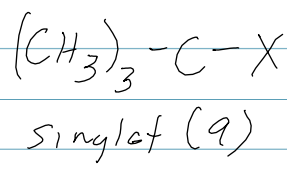 (CH₃)₃-C-X
singlet (9)